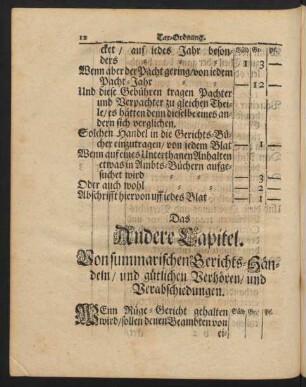 12 Tax-Ordnung.
cket / auf jedes Jahr beson- Güld Gr. Pf.
ders 1 3 —
Wenn aber der Pacht gering / von jedem
Pacht-Jahr — 12 —
Und diese Gebühren tragen Pachter
und Verpachter zu gleichen Thei-
le / es hätten denn dieselbe eines an-
dern sich verglichen.
Solchen Handel in die Gerichts-Bü-
cher einzutragen / von jedem Blat — 1 —
Wenn auf eines Unterthanen Anhalten
etwas in Ambts-Büchern aufge-
suchet wird — 3 —
Oder auch wohl — 2 —
Abschrifft hiervon uff jedes Blat — 1 —
Das
Andere Capitel.
Von summarischen Gerichts-Hän-
deln / und gütlichen Verhören / und
Verabschiedungen.
WEnn Rüge-Gericht gehalten Gr. Pf.
wird / sollen denen Beambten von
ei-